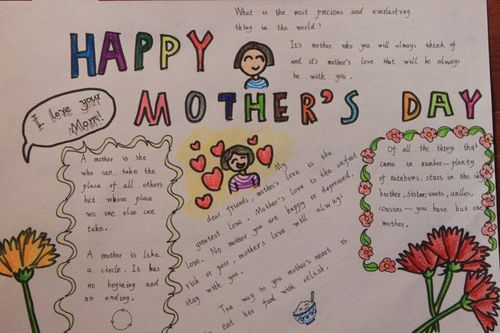 What is the most precious and everlasting
thing in the world?
It's mother who you will always think of
and it's mother's love that will be always
be with you.
HAPPY
MOTHER'S DAY
I love your
Mom!
A mother is she
who can take the
place of all others
but whose place
no one else can
take.
A mother is like
a circle. It has
no begining and
no ending.
My
dear friends, mother's love is the
greatest love. Mother's love is the safest
love. No mother you are happy or depressed,
rich or poor, mother's love will always
stay with you.
The way to you mother's heart is
eat her food with relish.
Of all the things that
came in number—plenty
of rainbows, stars in the sky
brother, sister, aunts, uncles,
cousins—you have but one
mother.